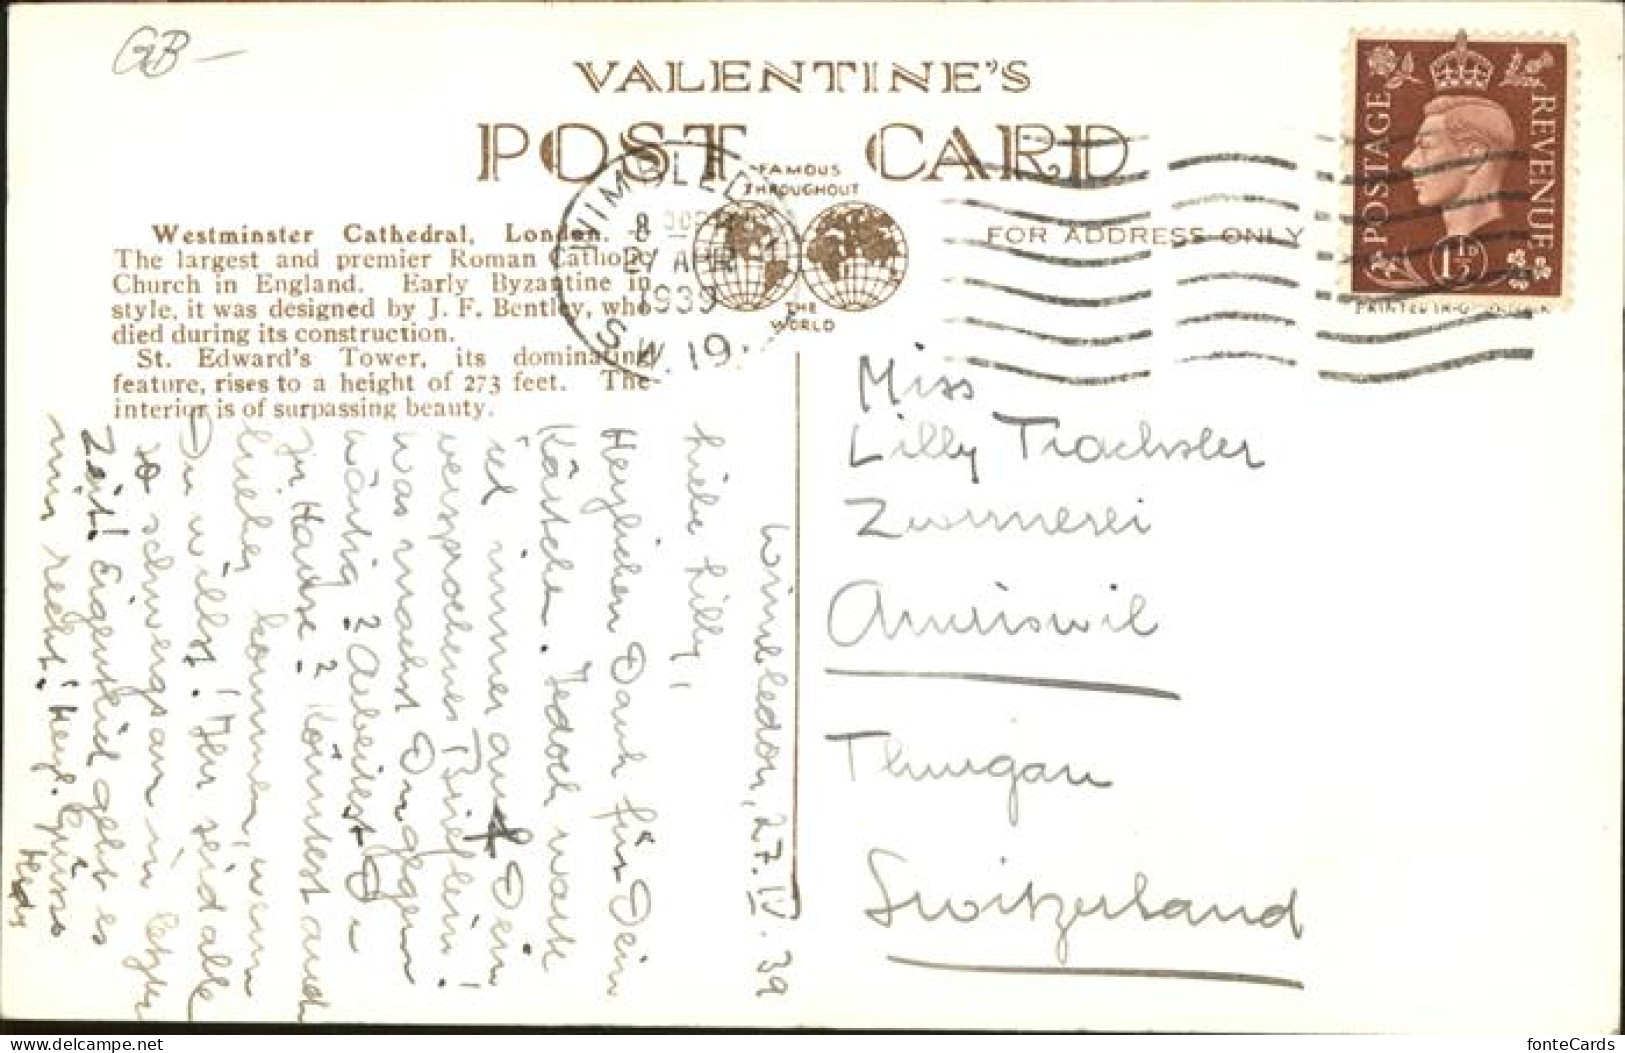 GB –
VALENTINE'S
POST CARD
FAMOUS
THROUGHOUT
THE
WORLD
FOR ADDRESS ONLY
POSTAGE
REVENUE
1½D
WIMBLEDON
8
27 APR
1939
S.W.19.
Westminster Cathedral, London.
The largest and premier Roman Catholic
Church in England. Early Byzantine in
style, it was designed by J. F. Bentley, who
died during its construction.
St. Edward's Tower, its dominating
feature, rises to a height of 273 feet. The
interior is of surpassing beauty.
Miss
Lilly Trachsler
Zwirnerei
Amriswil
Thurgau
Switzerland
Wimbledon, 27. IV. 39
Liebe Lilly,
Herzlichen Dank für Dein
Kärtchen. Jedoch warte
ich immer auf Dein
versprochenes Brieflein!
Was machst Du gegen
wärtig? Arbeitest Du
zu Hause? Könntest auch
hieher kommen, wenn
Du willst! Ihr seid alle
so schweigsam in letzter
Zeit! Eigentlich geht es
mir recht! Herzl. Grüsse
Hedy
fonteCards
delcampe.net